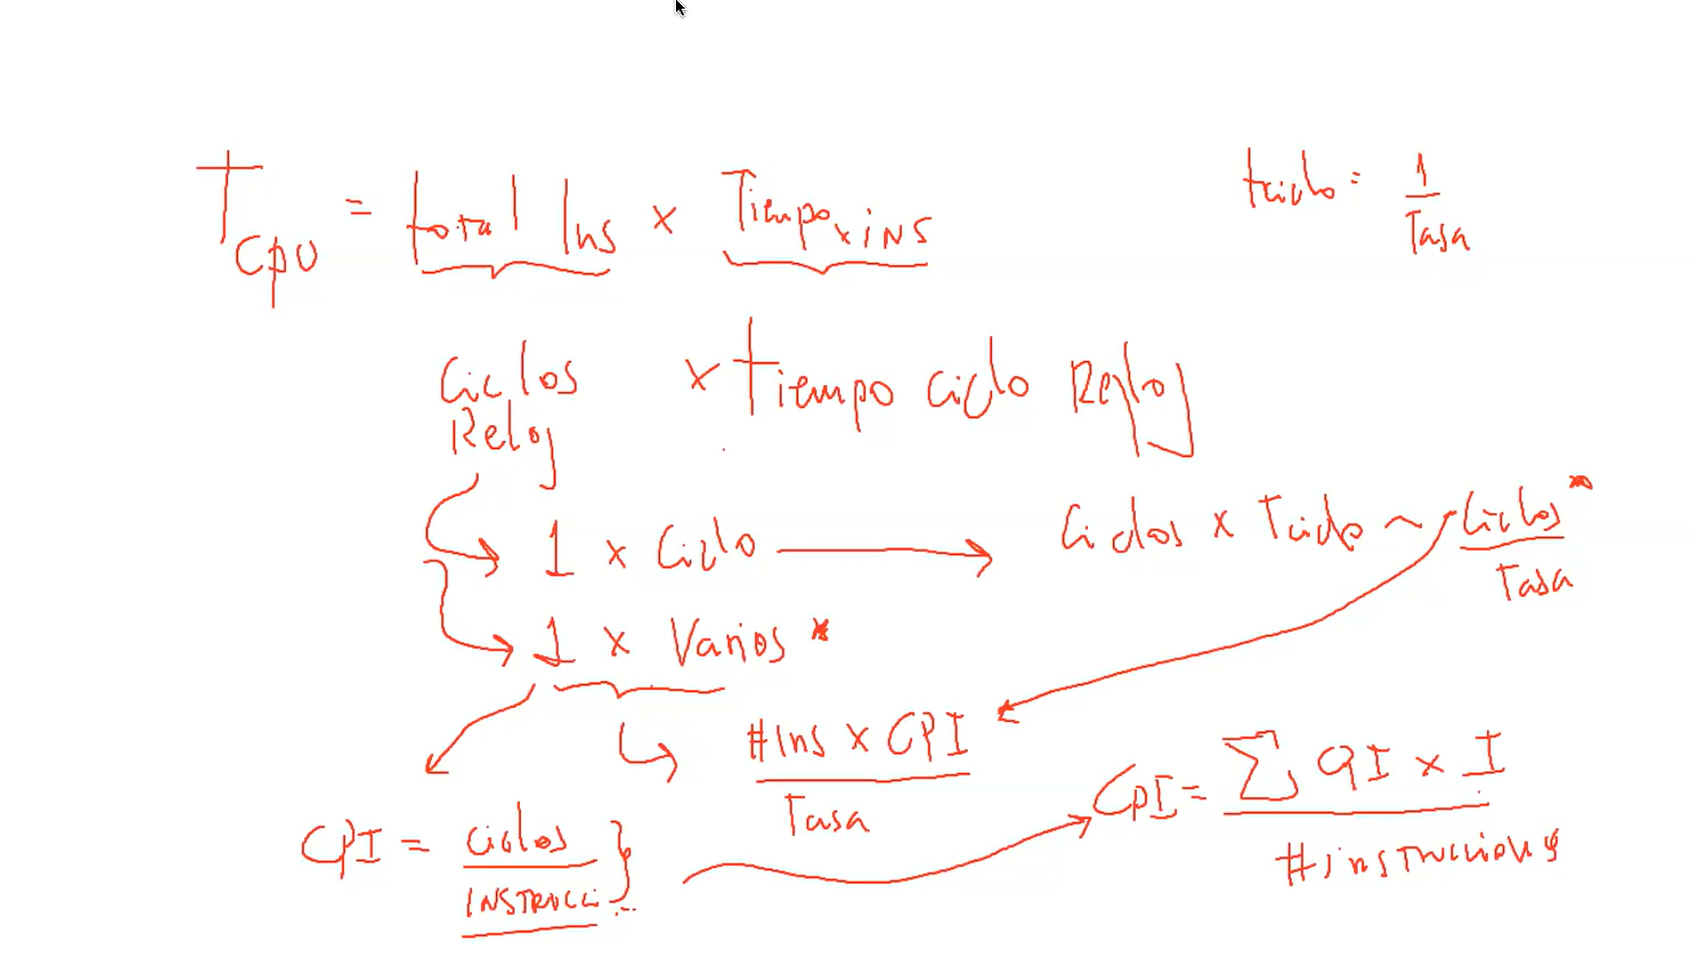 Tcpu = total Ins x Tiempo x ins
tciclo = 1 / Tasa
Ciclos Reloj x tiempo ciclo Reloj
1 x Ciclo → Ciclos x Tciclo ~ Ciclos* / Tasa
1 x Varios *
#Ins x CPI / Tasa
CPI = Ciclos / INSTRUCCI...
CPI = ∑ CPI x I / #instrucciones